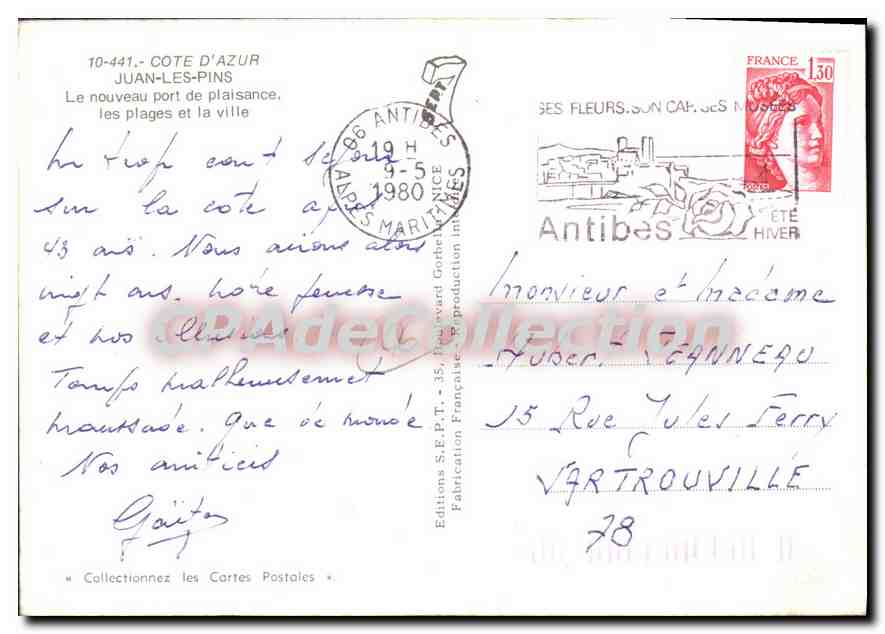 10-441.- COTE D'AZUR
JUAN-LES-PINS
Le nouveau port de plaisance,
les plages et la ville
Un trop court séjour
sur la cote après
43 ans. Nous avions alors
vingt ans. notre jeunesse
et nos illusions
Temps malheureusement
maussade. Que de monde
Nos amitiés
Gaëtan
« Collectionnez les Cartes Postales ».
SEPT
06 ANTIBES
19 H
9-5
1980
ALPES MARITIMES
Editions S.E.P.T. - 35, Boulevard Gorbella - NICE
Fabrication Française - Reproduction interdite
SES FLEURS.SON CAP.SES MUSÉES
Antibes
ÉTÉ
HIVER
FRANCE 1,30
Monsieur et Madame
Hubert JEANNEAU
15 Rue Jules Ferry
SARTROUVILLE
78
CPAdeCollection